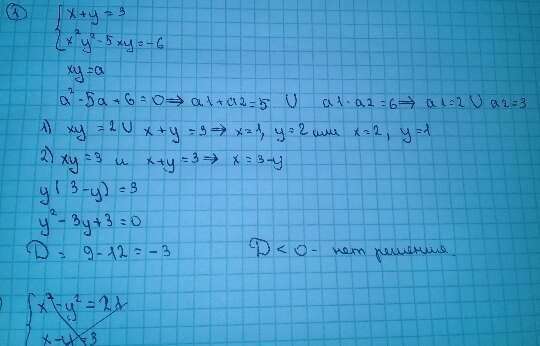 1) { x + y = 3
x²y² - 5xy = -6
xy = a
a² - 5a + 6 = 0 ⇒ a1 + a2 = 5 U a1 · a2 = 6 ⇒ a1 = 2 U a2 = 3
1) xy = 2 U x + y = 3 ⇒ x = 1, y = 2 или x = 2, y = 1
2) xy = 3 и x + y = 3 ⇒ x = 3 - y
y(3 - y) = 3
y² - 3y + 3 = 0
D = 9 - 12 = -3 D < 0 - нет решения.
) { x² - y² = 21
x - y = 3